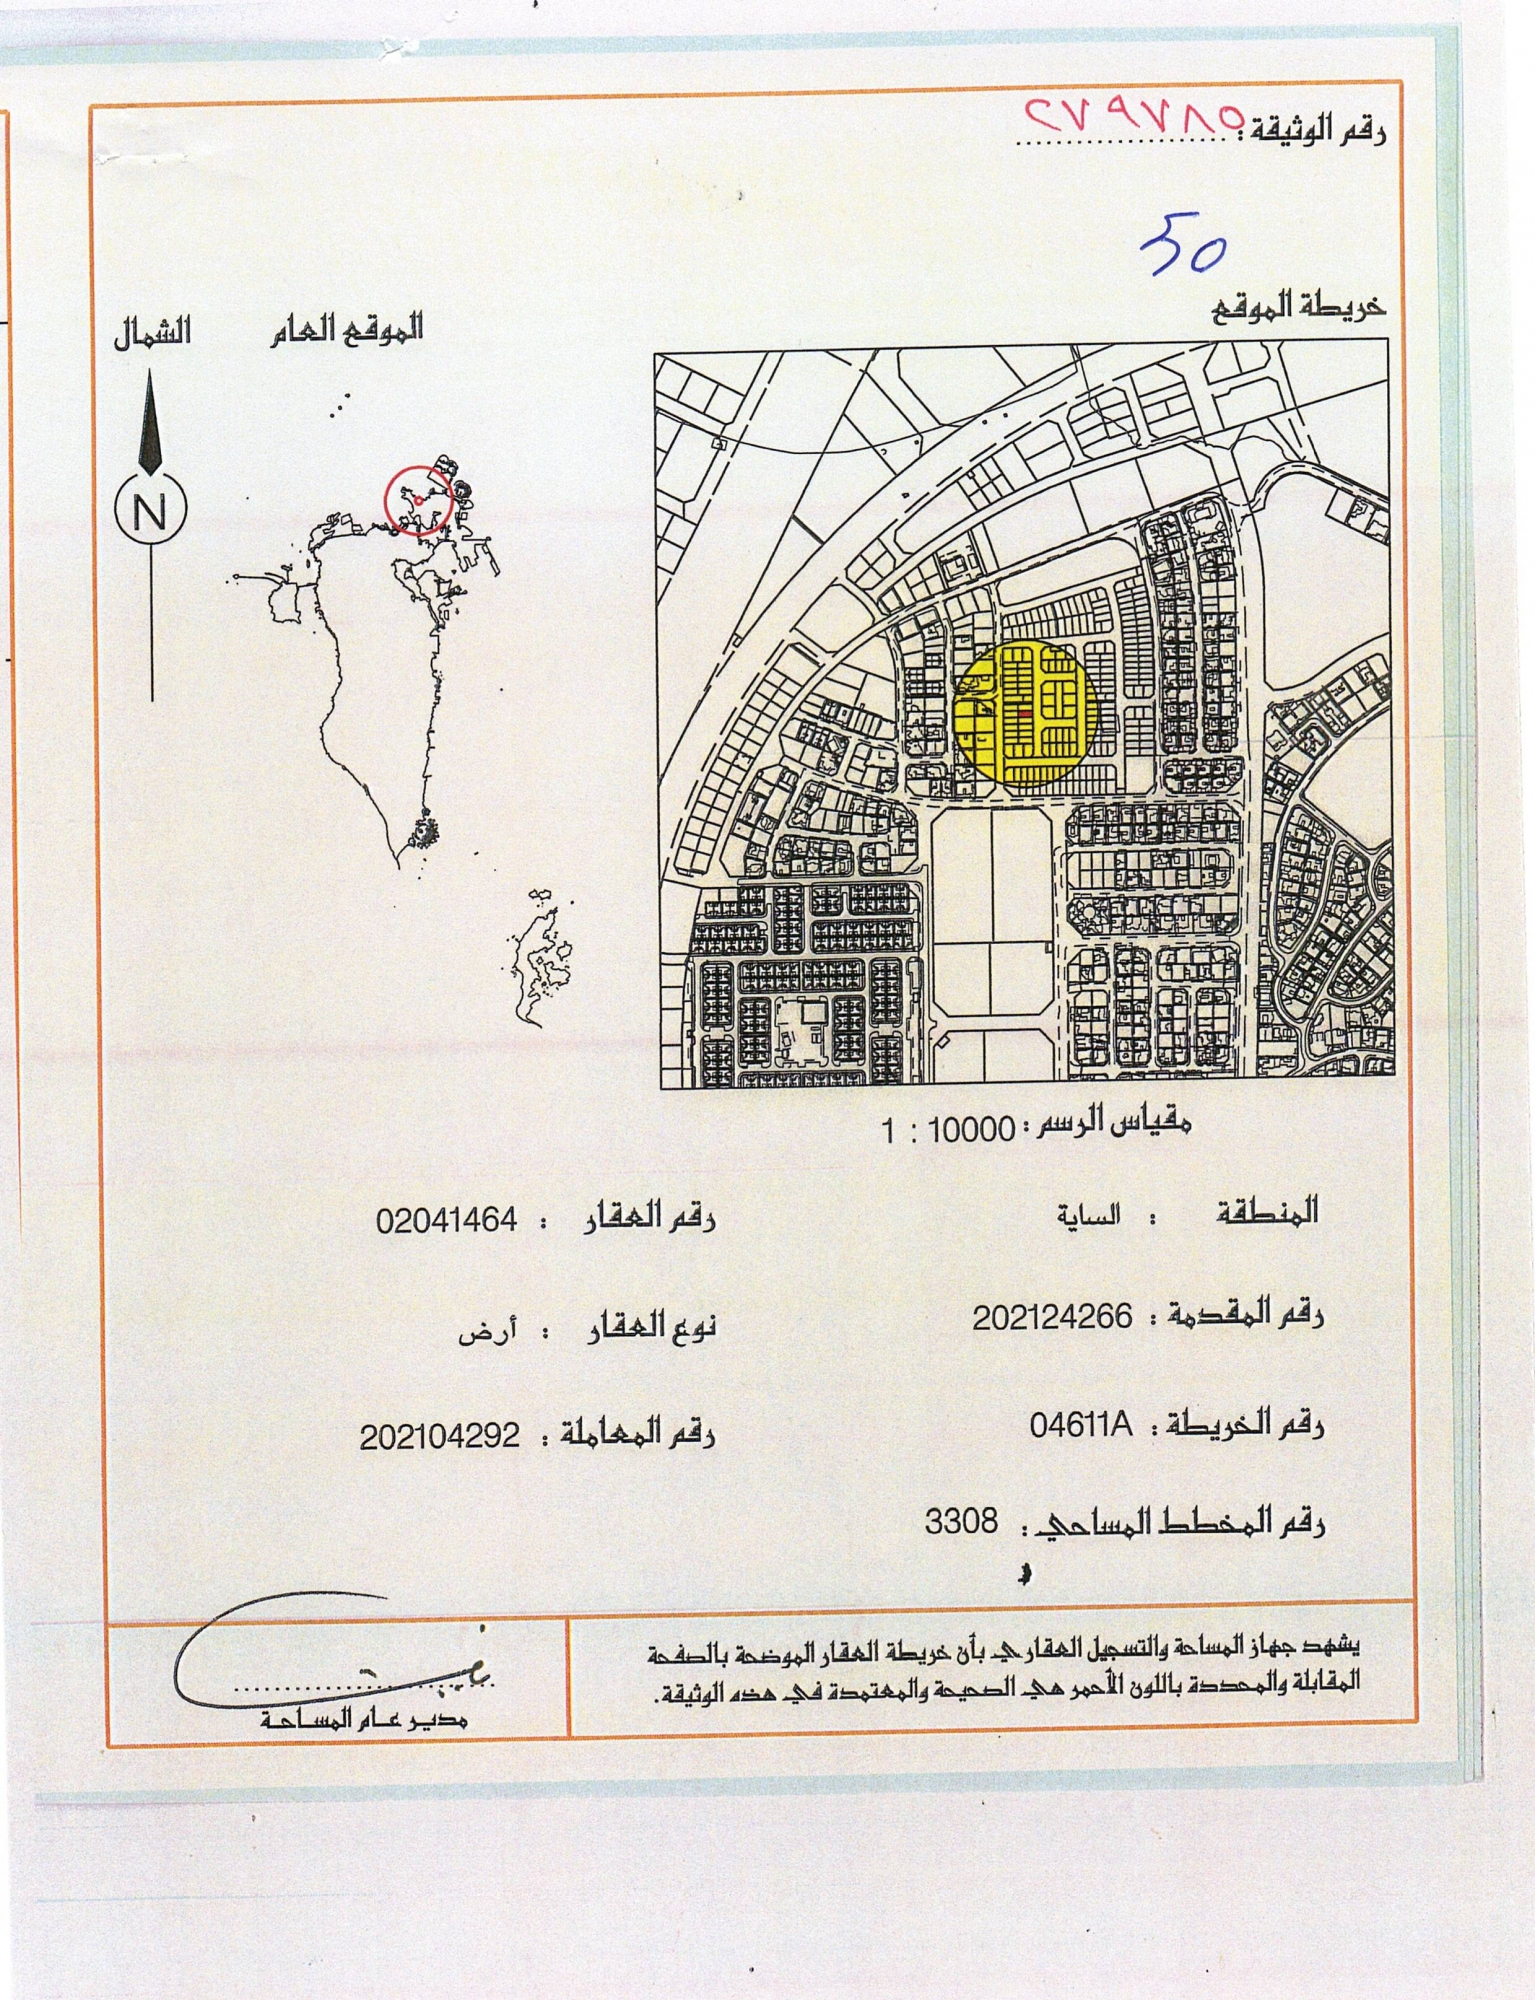 رقم الوثيقة: ٢٧٩٧٨٥
50
خريطة الموقع
الموقع العام
الشمال
N
مقياس الرسم : 10000 : 1
المنطقة : الساية
رقم العقار : 02041464
رقم المقدمة : 202124266
نوع العقار : أرض
رقم الخريطة : 04611A
رقم المعاملة : 202104292
رقم المخطط المساحي : 3308
يشهد جهاز المساحة والتسجيل العقاري بأن خريطة العقار الموضحة بالصفحة
المقابلة والمحددة باللون الأحمر هي الصحيحة والمعتمدة في هذه الوثيقة.
مدير عام المساحة